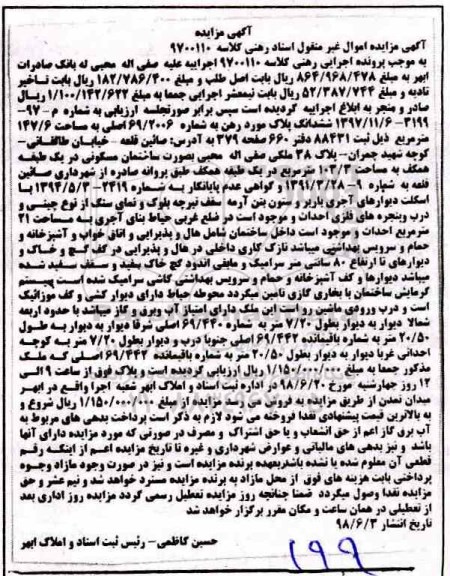 آگهی مزایده
آگهی مزایده اموال غیر منقول اسناد رهنی کلاسه ۹۷۰۰۱۱۰
به موجب پرونده اجرایی رهنی کلاسه ۹۷۰۰۱۱۰ اجراییه علیه صفی اله محبی له بانک صادرات
ابهر به مبلغ ۸۶۴/۹۶۸/۴۷۸ ریال بابت اصل طلب و مبلغ ۱۸۲/۷۸۶/۴۰۰ ریال بابت تاخیر
تادیه و مبلغ ۵۲/۳۸۷/۷۴۴ ریال بابت نیمعشر اجرایی جمعا به مبلغ ۱/۱۰۰/۱۴۲/۶۲۲ ریال
صادر و منجر به ابلاغ اجراییه گردیده است سپس برابر صورتجلسه ارزیابی به شماره م - ۹۷-
۳۱۹۹- ۱۳۹۷/۱۱/۶ ششدانگ پلاک مورد رهن به شماره ۶۹/۲۰۰۶ اصلی به مساحت ۱۴۷/۶
مترمربع ذیل ثبت ۸۸۴۳۱ دفتر ۶۶۰ صفحه ۳۷۹ به آدرس: صائین قلعه - خیابان طالقانی-
کوچه شهید چمران- پلاک ۳۸ ملکی صفی اله محبی بصورت ساختمان مسکونی در یک طبقه
همکف به مساحت مترمربع در یک طبقه همکف طبق پروانه صادره از شهرداری صائین
قلعه به شماره ۹- ۱۳۹۱/۳/۲۸ و گواهی عدم پایانکار به شماره ۲۴۱۹- ۱۳۹۴/۵/۳ با
اسکلت دیوارهای آجری باربر و ستون بتن آرمه سقف تیرچه بلوک و نمای سنگ از نوع چینی و
درب وپنجره های فلزی احداث و موجود است در ضلع غربی حیاط بنای آجری به مساحت ۲۱
مترمربع احداث و موجود است داخل ساختمان شامل هال و پذیرایی و اتاق خواب و آشپزخانه و
حمام و سرویس بهداشتی میباشد نازک کاری داخلی در هال و پذیرایی در کف گچ و خاک و
دیوارهای تا ارتفاع ۸۰ سانتی متر سرامیک و مابقی اندود گچ خاک سفید و سقف سفید شده
میباشد دیوارها و کف آشپزخانه و حمام و سرویس بهداشتی کاشی سرامیک شده است سیستم
گرمایش ساختمان با بخاری گازی تامین میگردد محوطه حیاط دارای دیوار کشی و کف موزائیک
است و درب ورودی ماشین رو است این ملک دارای امتیاز آب وبرق و گاز میباشد با حدود اربعه
شمالا دیوار به دیوار بطول ۷/۲۰ متر به شماره ۶۹/۴۴۰ اصلی شرقا دیوار به دیوار به طول
۲۰/۵۰ متر به شماره باقیمانده ۶۹/۴۴۲ اصلی جنوبا درب و دیوار بطول ۷/۲۰ متر به کوچه
احداثی غربا دیوار به دیوار به طول ۲۰/۵۰ متر به شماره باقیمانده ۶۹/۴۴۲ اصلی که ملک
مذکور جمعا به مبلغ ۱/۱۵۰/۰۰۰/۰۰۰ ریال ارزیابی گردیده است و پلاک فوق از ساعت ۹ الی
۱۲ روز چهارشنبه مورخ ۹۸/۶/۲۰ در اداره ثبت اسناد و املاک ابهر شعبه اجرا واقع در ابهر
میدان تمدن از طریق مزایده به فروش می رسد مزایده از مبلغ ۱/۱۵۰/۰۰۰/۰۰۰ ریال شروع و
به بالاترین قیمت پیشنهادی نقدا فروخته می شود لازم به ذکر است پرداخت بدهی های مربوط به
آب برق گاز اعم از حق انشعاب و یا حق اشتراک و مصرف در صورتی که مورد مزایده دارای آنها
باشد و نیز بدهی های مالیاتی و عوارض شهرداری و غیره تا تاریخ مزایده اعم از اینکه رقم
قطعی آن معلوم شده یا نشده باشد بعهده برنده مزایده است و نیز در صورت وجود مازاد وجوه
پرداختی بابت هزینه های فوق از محل مازاد به برنده مزایده مسترد خواهد شد و نیم عشر و حق
مزایده نقدا وصول میگردد ضمنا چنانچه روز مزایده تعطیل رسمی گردد مزایده روز اداری بعد
از تعطیلی در همان ساعت و مکان مقرر برگزار خواهد شد
تاریخ انتشار ۹۸/۶/۳
حسین کاظمی- رئیس ثبت اسناد و املاک ابهر
۱۹۹